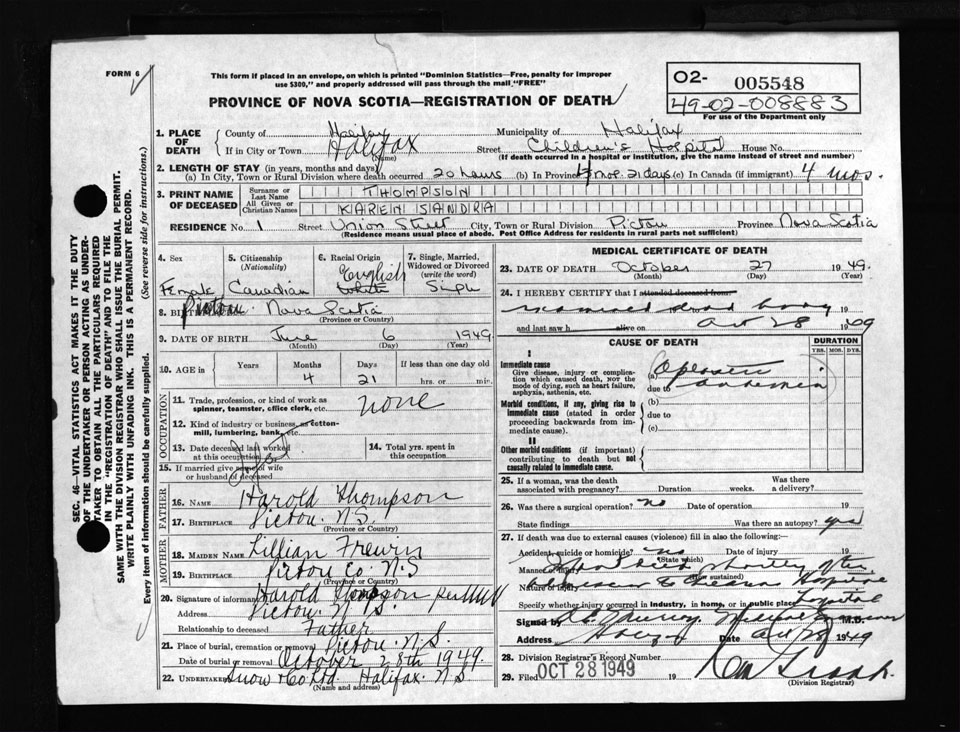 FORM 6
This form if placed in an envelope, on which is printed "Dominion Statistics—Free, penalty for improper
use $300," and properly addressed will pass through the mail "FREE"
PROVINCE OF NOVA SCOTIA—REGISTRATION OF DEATH
O2- 005548
49-02-008883
For use of the Department only
1. PLACE OF DEATH
County of Halifax Municipality of Halifax
If in City or Town Halifax (Name) Street Children's Hospital House No.
(If death occurred in a hospital or institution, give the name instead of street and number)
2. LENGTH OF STAY (in years, months and days)
(a) In City, Town or Rural Division where death occurred 20 hours (b) In Province 4 mos. 21 days (c) In Canada (if immigrant) 4 mos.
3. PRINT NAME OF DECEASED
Surname or Last Name THOMPSON
All Given or Christian Names KAREN SANDRA
RESIDENCE No. 1 Street Union Street City, Town or Rural Division Pictou Province Nova Scotia
(Residence means usual place of abode. Post Office Address for residents in rural parts not sufficient)
4. Sex Female
5. Citizenship (Nationality) Canadian
6. Racial Origin English White
7. Single, Married, Widowed or Divorced (write the word) Single
8. Nova Scotia
(Province or Country)
9. DATE OF BIRTH June 6 1949
(Month) (Day) (Year)
10. AGE in Years Months 4 Days 21 If less than one day old hrs. or min.
OCCUPATION
11. Trade, profession, or kind of work as spinner, teamster, office clerk, etc. none
12. Kind of industry or business, as cotton-mill, lumbering, bank, etc.
13. Date deceased last worked at this occupation
14. Total yrs. spent in this occupation
15. If married give name of wife or husband of deceased
FATHER
16. NAME Harold Thompson
17. BIRTHPLACE Pictou N.S.
(Province or Country)
MOTHER
18. MAIDEN NAME Lillian Frewin
19. BIRTHPLACE Pictou Co. N.S
(Province or Country)
20. Signature of informant Harold Thompson per
Address Pictou. N.S.
Relationship to deceased Father
21. Place of burial, cremation or removal Pictou. N.S.
Date of burial or removal October 28th 1949.
22. UNDERTAKER Snow & Co Ltd. Halifax. N.S.
(Name and address)
MEDICAL CERTIFICATE OF DEATH
23. DATE OF DEATH October 27 1949.
(Month) (Day) (Year)
24. I HEREBY CERTIFY that I attended deceased from
19
and last saw h alive on Oct 28 19
CAUSE OF DEATH
DURATION
YRS. MOS. DYS.
I
Immediate cause
Give disease, injury or complication which caused death, NOT the mode of dying, such as heart failure, asphyxia, asthenia, etc.
(a)
due to
Morbid conditions, if any, giving rise to immediate cause (stated in order proceeding backwards from immediate cause).
(b)
due to
(c)
II
Other morbid conditions (if important) contributing to death but not causally related to immediate cause.
25. If a woman, was the death associated with pregnancy? Duration weeks. Was there a delivery?
26. Was there a surgical operation? no Date of operation 19
State findings Was there an autopsy? yes
27. If death was due to external causes (violence) fill in also the following:—
Accident, suicide or homicide? no Date of injury 19
(State which)
Manner of injury
(How sustained)
Nature of injury
Specify whether injury occurred in industry, in home, or in public place Hospital
Signed by Medical Examiner M.D.
Address Date Oct 28 1949
28. Division Registrar's Record Number
29. Filed OCT 28 1949 19
(Division Registrar)
SEC. 46 — VITAL STATISTICS ACT MAKES IT THE DUTY
OF THE UNDERTAKER OR PERSON ACTING AS UNDER-
TAKER TO OBTAIN ALL THE PARTICULARS REQUIRED
IN THE "REGISTRATION OF DEATH" AND TO FILE THE
SAME WITH THE DIVISION REGISTRAR WHO SHALL ISSUE THE BURIAL PERMIT.
WRITE PLAINLY WITH UNFADING INK. THIS IS A PERMANENT RECORD.
Every item of information should be carefully supplied. (See reverse side for instructions.)